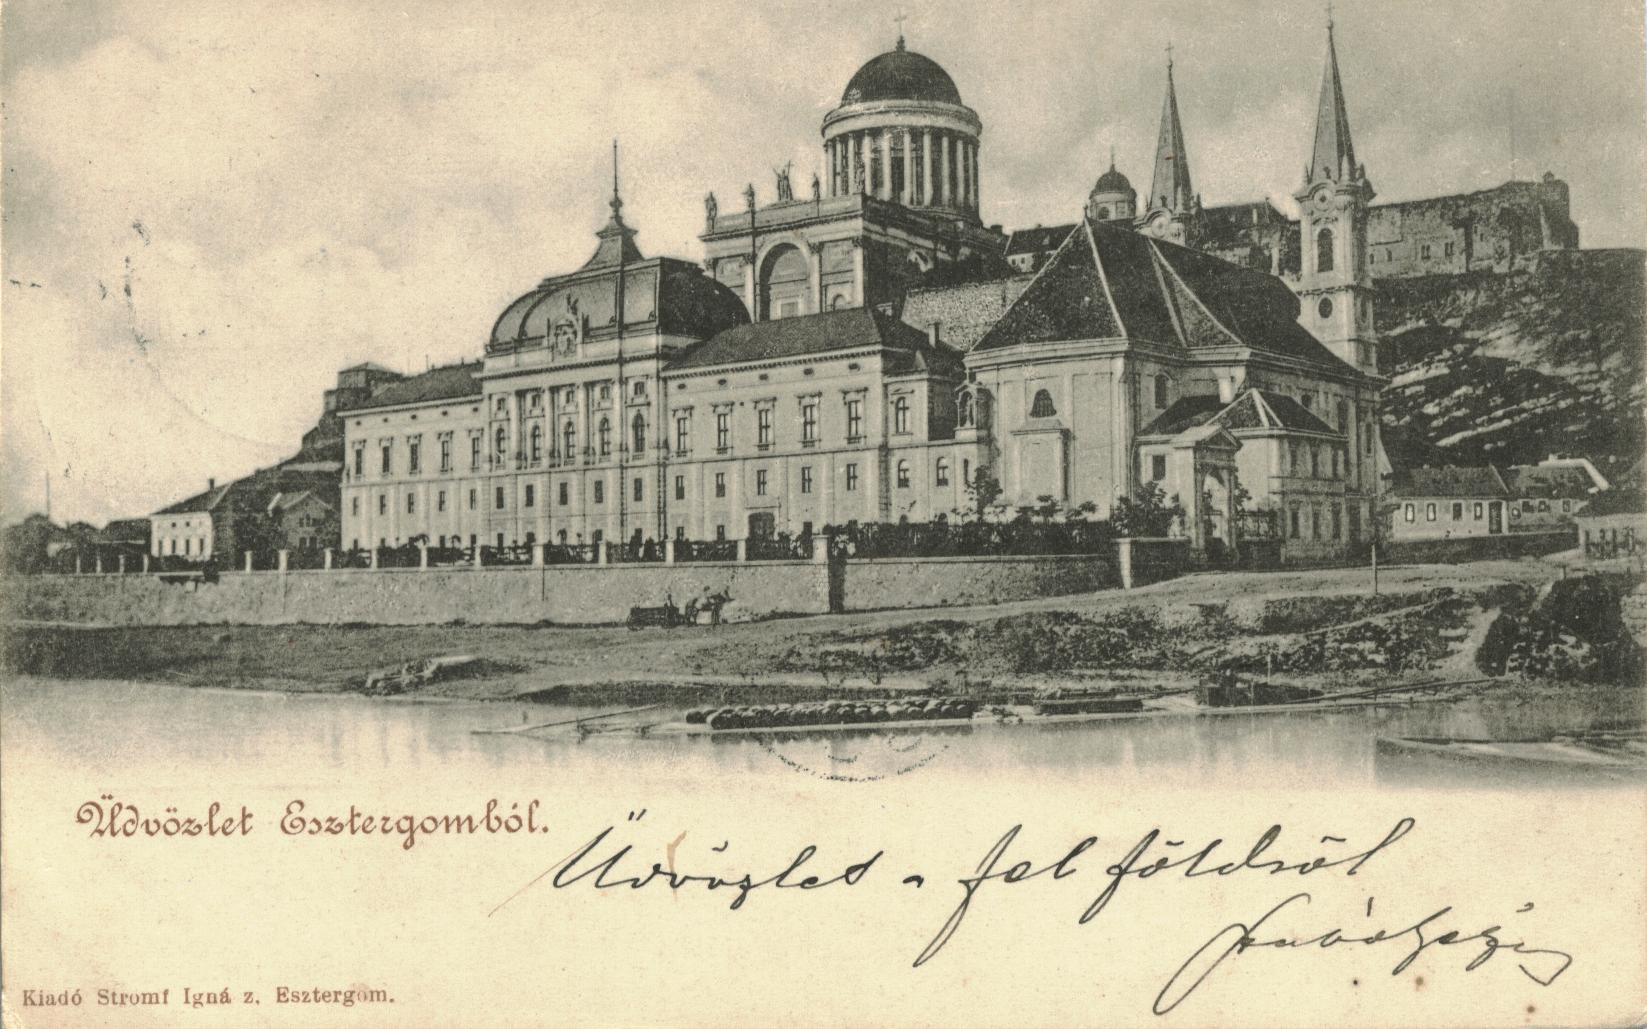 Üdvözlet Esztergomból.
Üdvözlet a felföldről
Kiadó Stromf Igná z, Esztergom.